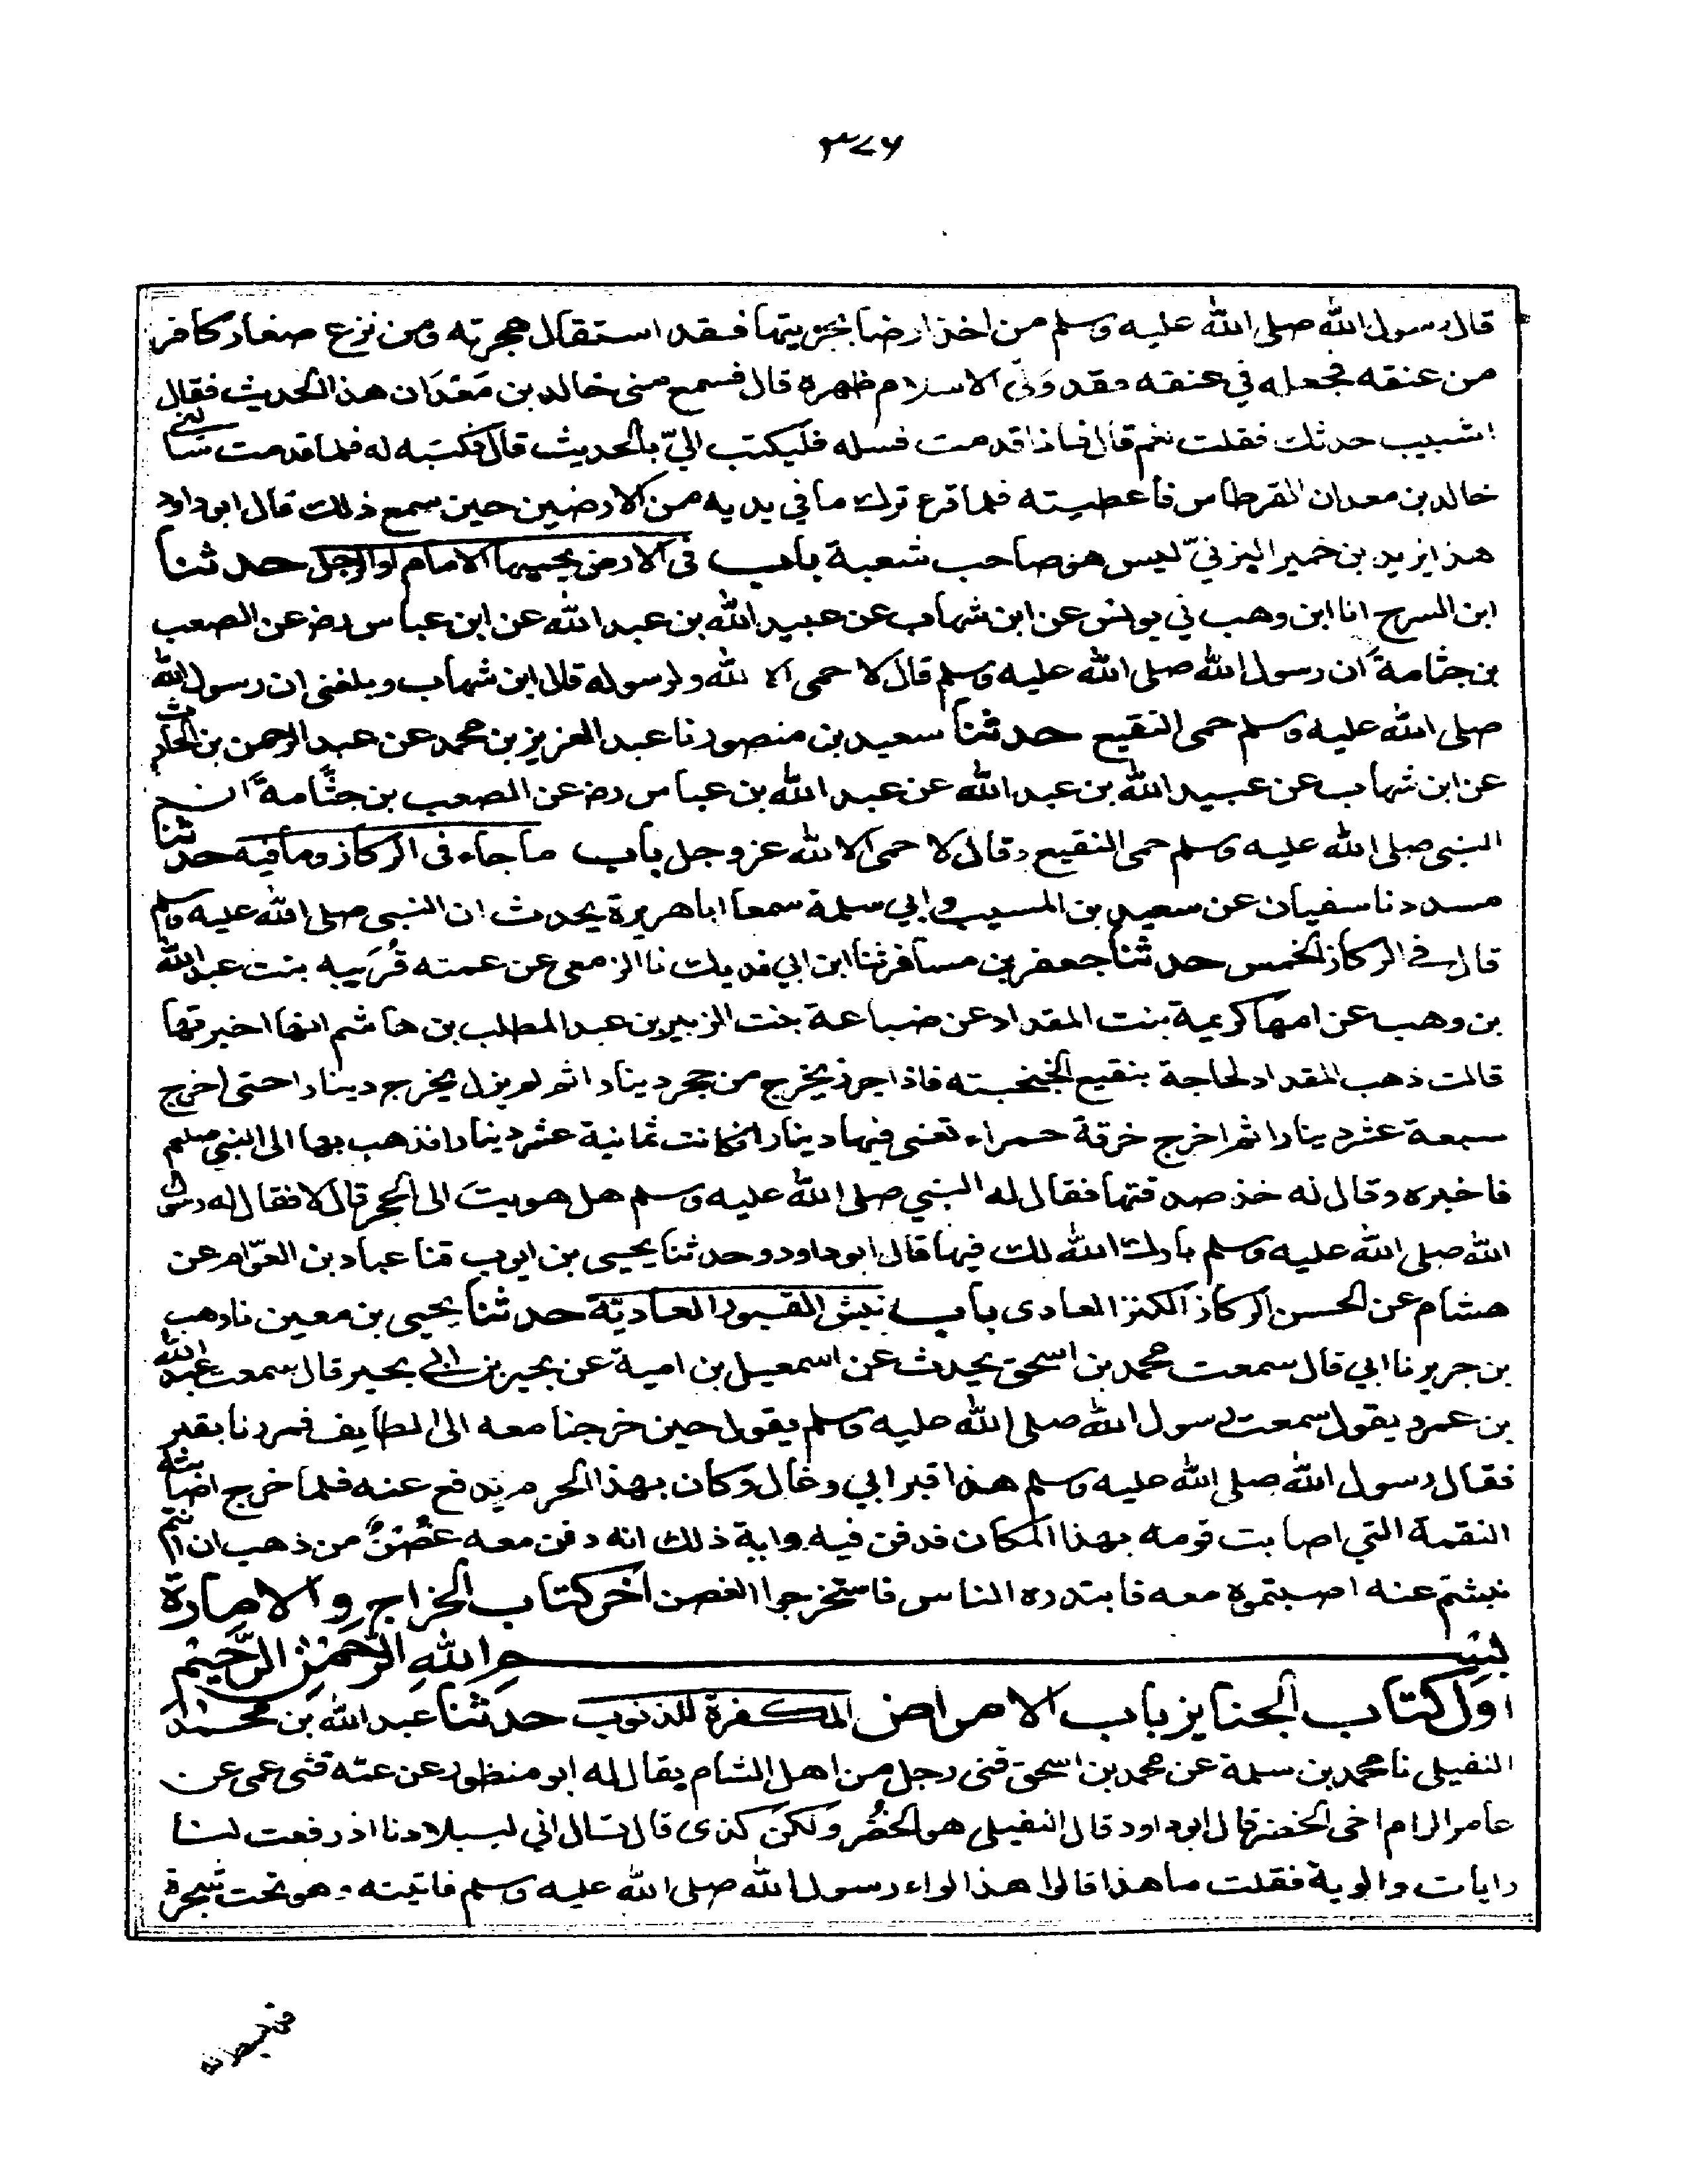 ٣٧٦
قال رسول الله صلى الله عليه وسلم من اخذ ارضا بجزيتها فقد استقال هجرته ومن نزع صغار كافر
من عنقه فجعله في عنقه فقد ولّى الاسلام ظهره قال فسمع منى خالد بن مَعْدَان هذا الحديث فقال
اشبيب حدثك فقلت نعم قال فاذا قدمت فسله فليكتب اليّ بالحديث قال فكتبه له فلما قدمت سألني
خالد بن معدان القرطاس فاعطيته فلما قرء ترك ما في يديه من الارضين حين سمع ذلك قال ابو داود
هذا يزيد بن خمير اليزنيّ ليس هو صاحب شعبة باب فى الارض يحميها الامام او الرجل حدثنا
ابن السرح انا ابن وهب ني يونس عن ابن شهاب عن عبيد الله بن عبد الله عن ابن عباس رض عن الصعب
بن جثامة ان رسول الله صلى الله عليه وسلم قال لا حمى الا لله ولرسوله قال ابن شهاب وبلغنى ان رسول الله
صلى الله عليه وسلم حمى النقيع حدثنا سعيد بن منصور نا عبد العزيز بن محمد عن عبد الرحمن بن الحارث
عن ابن شهاب عن عبيد الله بن عبد الله عن عبد الله بن عباس رض عن الصعب بن جثّامة ان
النبى صلى الله عليه وسلم حمى النقيع وقال لا حمى الا لله عز وجل باب ما جاء فى الركاز وما فيه حدثنا
مسدد نا سفيان عن سعيد بن المسيب وابي سلمة سمعا ابا هريرة يحدث ان النبى صلى الله عليه وسلم
قال في الركاز الخمس حدثنا جعفر بن مسافر ثنا ابن ابي فديك نا الزمعى عن عمته قُرَيبه بنت عبد الله
بن وهب عن امها كريمة بنت المقداد عن ضباعة بنت الزبير بن عبد المطلب بن هاشم انها اخبرتها
قالت ذهب المقداد لحاجة بنقيع الخبخبته فاذا جرذ يخرج من جحر دينارا ثم لم يزل يخرج دينارا حتى اخرج
سبعة عشر دينارا ثم اخرج خرقة حمراء تعنى فيها دينار فكانت ثمانية عشر دينارا فذهب بها الى النبى صلعم
فاخبره وقال له خذ صدقتها فقال له النبي صلى الله عليه وسلم هل هويت الى الجحر قال لا فقال له رسول
الله صلى الله عليه وسلم بارك الله لك فيها قال ابو داود وحدثنا يحيى بن ايوب قثنا عباد بن العوّام عن
هشام عن الحسن الركاز الكنز العادى باب نبش القبور العاديّة حدثنا يحيى بن معين نا وهب
بن جرير نا ابي قال سمعت محمد بن اسحق يحدث عن اسمعيل بن امية عن بجير بن ابي بجير قال سمعت عبد الله
بن عمرو يقول سمعت رسول الله صلى الله عليه وسلم يقول حين خرجنا معه الى الطايف فمررنا بقبر
فقال رسول الله صلى الله عليه وسلم هذا قبر ابي رغال وكان بهذا الحرم يدفع عنه فلما خرج اصابته
النقمة التي اصابت قومه بهذا المكان فدفن فيه واية ذلك انه دفن معه غُصْنٌ من ذهب ان انتم
نبشتم عنه اصبتموه معه فابتدره الناس فاستخرجوا الغصن آخر كتاب الخراج والامارة
بسم الله الرحمن الرحيم
اول كتاب الجنايز باب الامراض المكفرة للذنوب حدثنا عبد الله بن محمد
النفيلى نا محمد بن سلمة عن محمد بن اسحق قثنى رجل من اهل الشام يقال له ابو منظور عن عمّه قثى عمى عن
عامر الرام اخى الخضر قال ابو داود قال النفيلى هو الخُضْر ولكن كذى قال قال اني لببلادنا اذ رفعت لنا
رايات والوية فقلت ما هذا قالوا هذا لواء رسول الله صلى الله عليه وسلم فاتيته وهو تحت شجرة